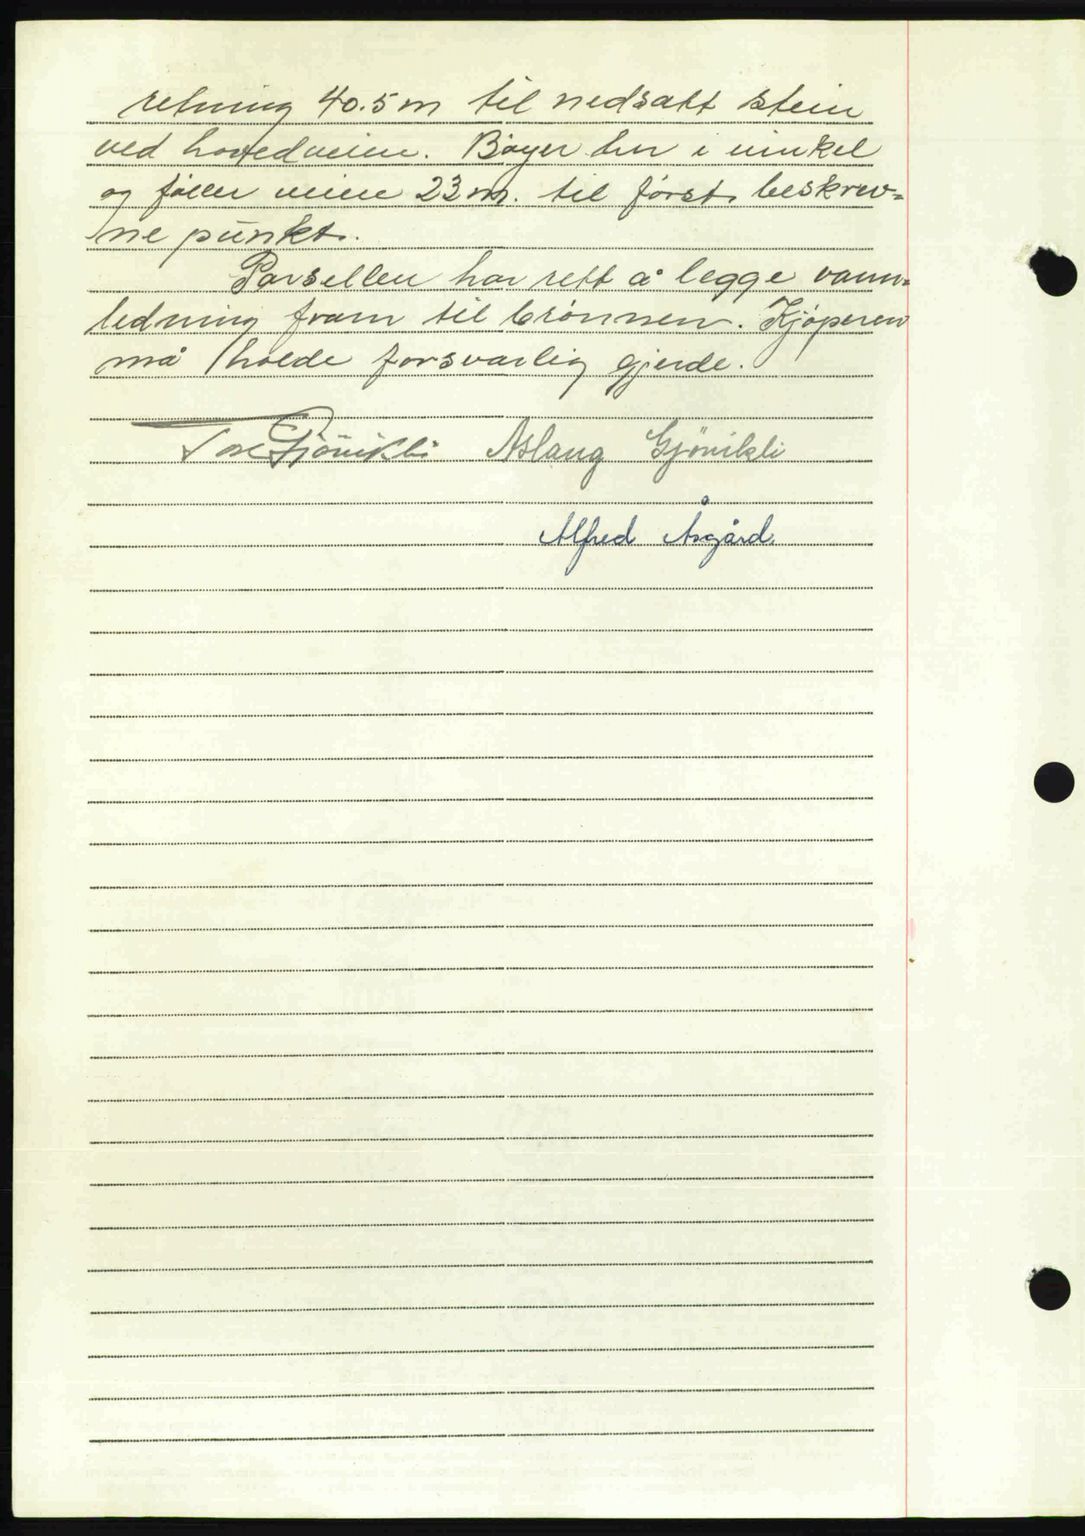 retning 40.5 m til nedsatt stein
ved hovedveien. Bøyer her i vinkel
og følger veien 23 m. til først beskrev=
ne punkt.
Parsellen har rett å legge vann=
ledning fram til brønnen. Kjøperen
må holde forsvarlig gjerde.
Tore Gjönvikli Aslaug Gjönvikli
Alfred Åsgård